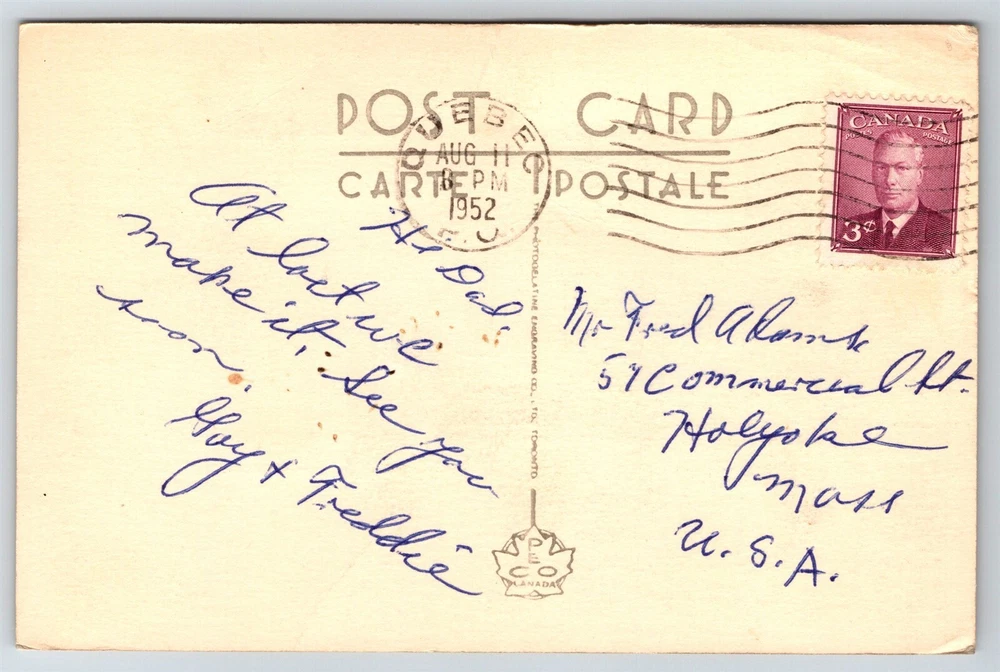 POST CARD
CARTE POSTALE
QUEBEC
AUG 11
8 PM
1952
P.Q.
CANADA
POSTES POSTAGE
3¢
Hi Dad,
At last we
make it, See you
soon.
Guy + Freddie
Mr Fred Adams
57 Commercial St.
Holyoke
Mass
U.S.A.
PHOTOGELATINE ENGRAVING CO., LTD. TORONTO
PECO
CANADA